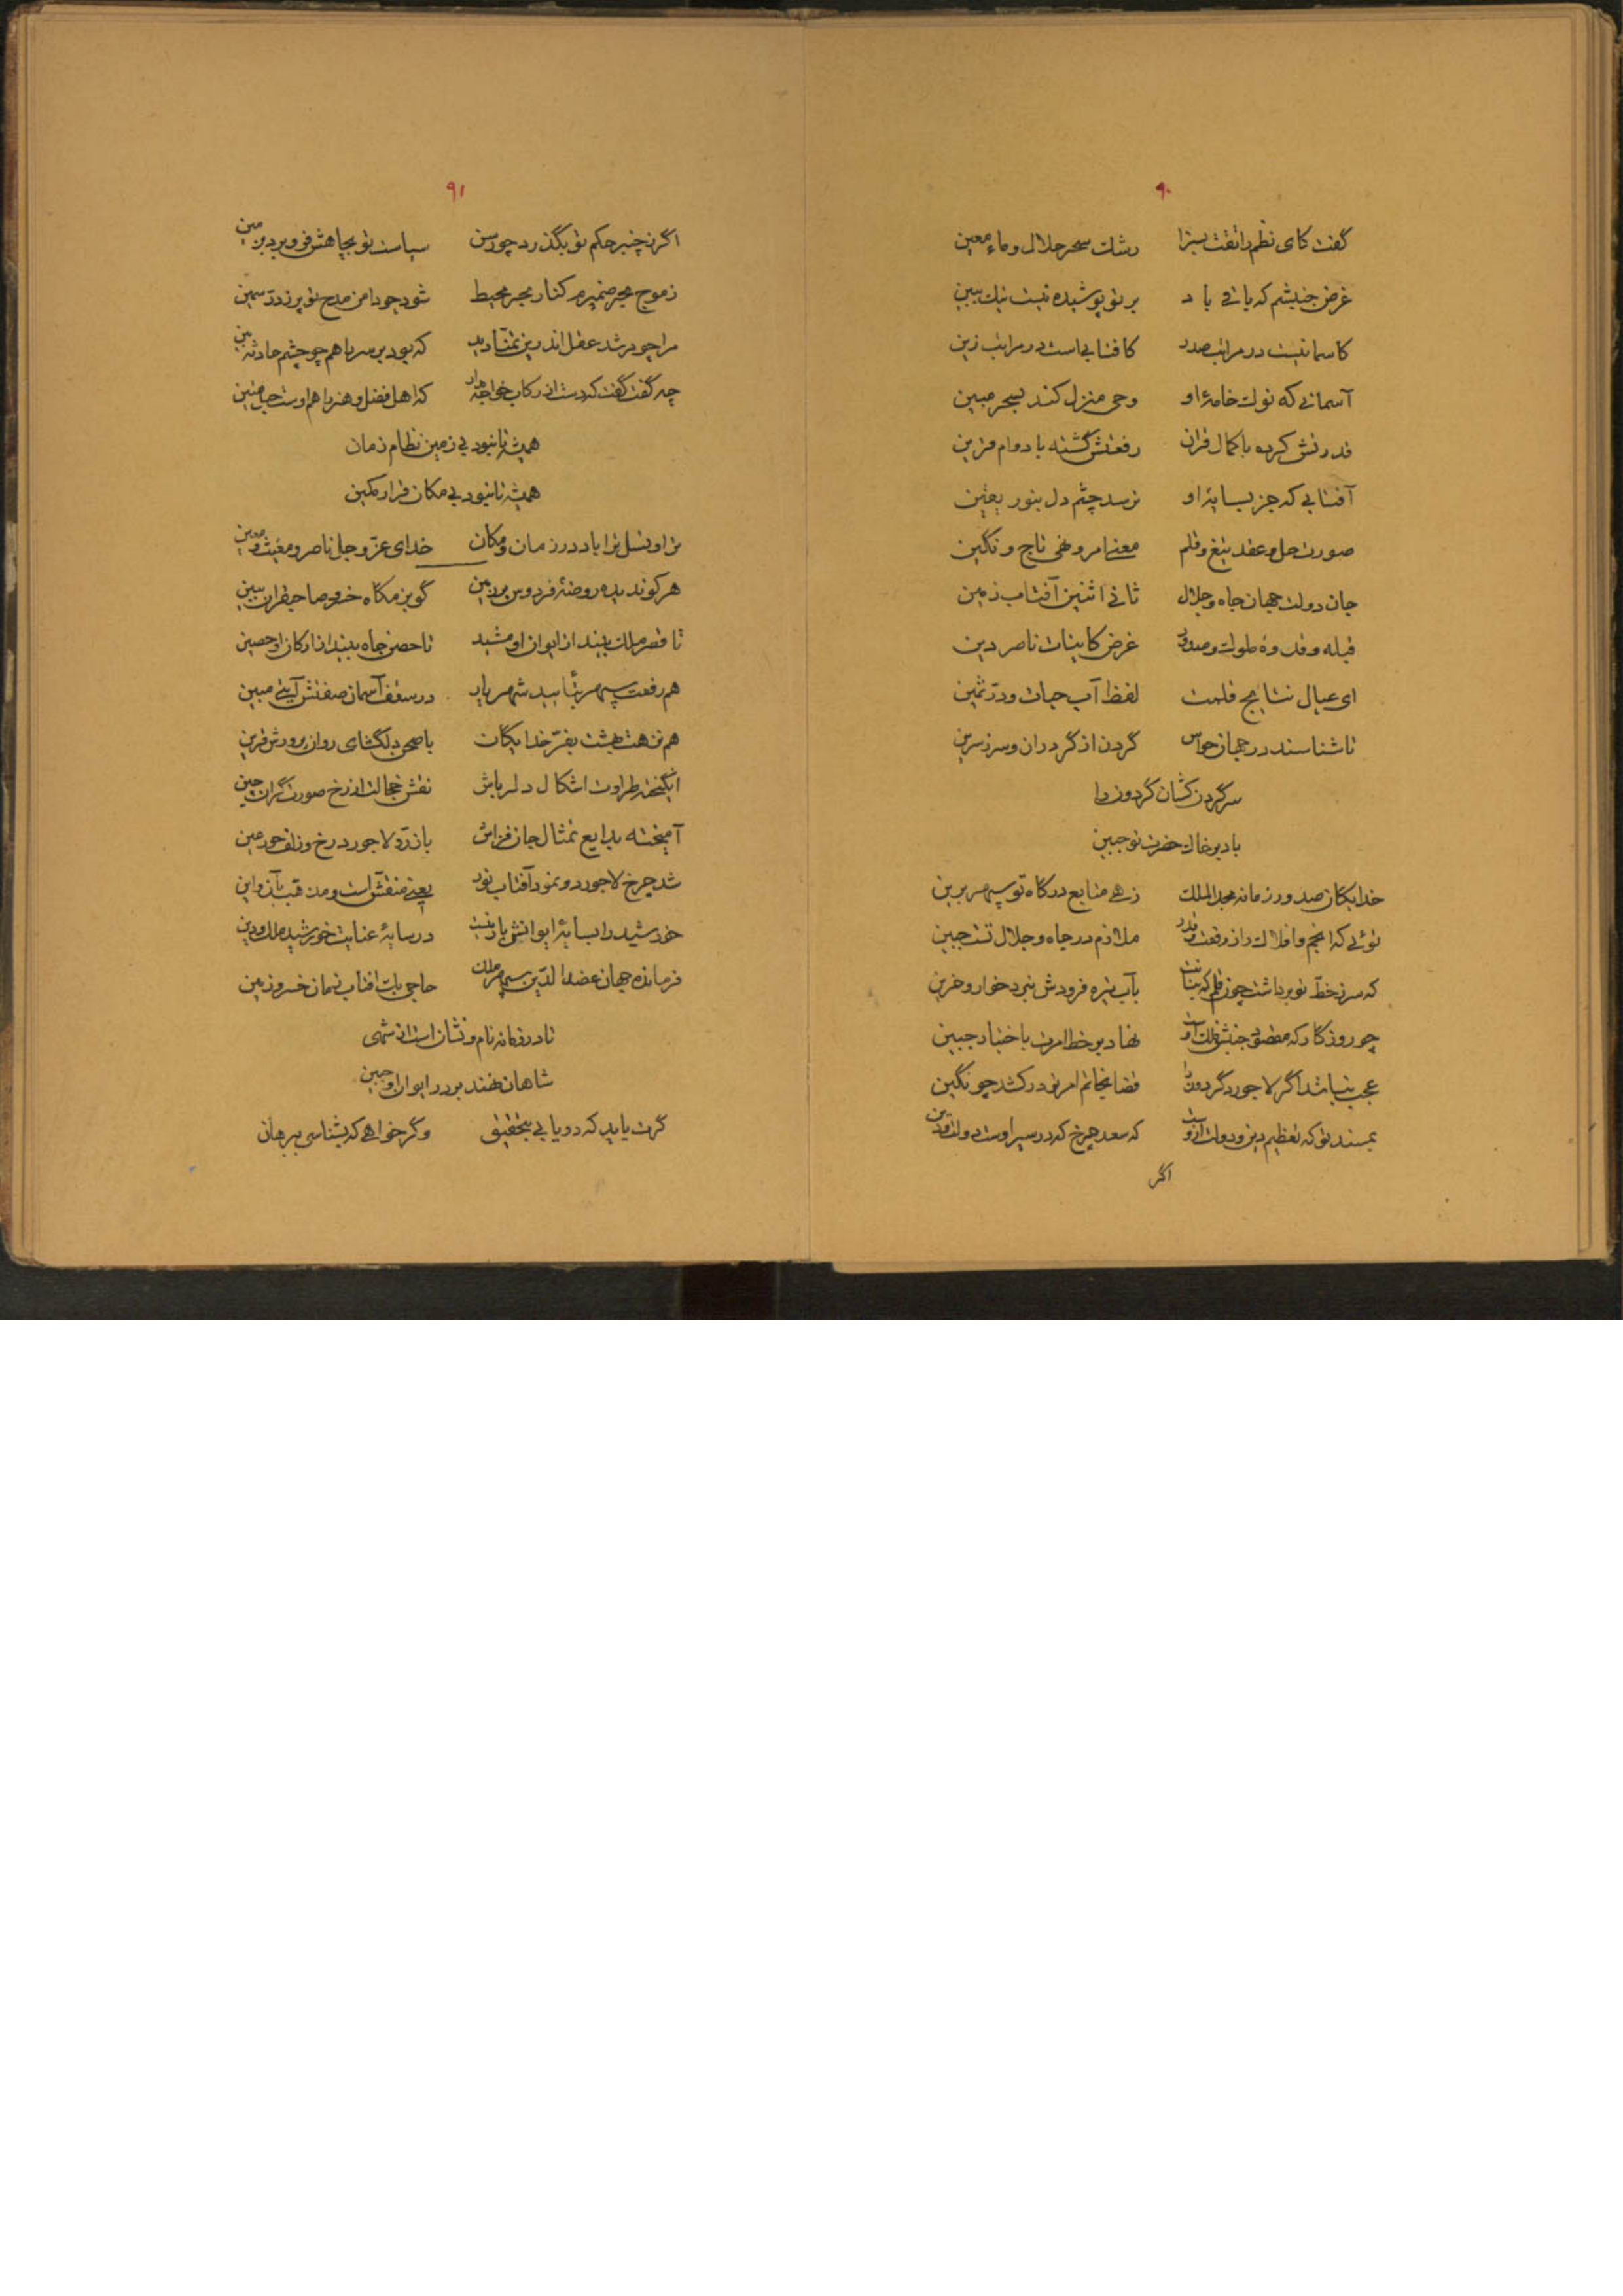 ۹۰
گفت کای نظم را تفت بسزا رشک سحر حلال و ماء معین
غرض جنبشم که باقی باد بر تو پوشیده نیست نیک ببین
کاسمانیست در مراتب صدد کافتابی است در مراتب زین
آسمانی که نوک خامهٔ او وحی منزل کند بسحر مبین
قدرتش کرده با کمال قران رفعتش گشته با دوام قرین
آفتابی که جز بسایهٔ او نرسد چشم دل بنور یقین
صورت حل و عقد تیغ و قلم معنی امر و نهی تاج و نگین
جان دولت جهان جاه و جلال ثانی اثنین آفتاب زمین
قبله و قدوهٔ ملوک و صدور غرض کاینات ناصر دین
ای عیال نتایج قلمت لفظ آب حیات و درّ ثمین
تا شناسند در جهان حواس گردن از گردران و سر ز سرین
سر گردن کشان گردون را
باد بر خاک حضرت تو جبین
خدایگان صدور زمانه مجد الملک زهی متابع درگاه تو سپهر برین
توئی که انجم و افلاک را ز رفعت و قدر ملازم در جاه و جلال تست جبین
که سر ز خطّ تو برداشت چون قلم که بنانت بآب تیره فرودش نبرد خوار و حزین
چو روزگار که مقصود جنبش فلک اوست نهاد بر خط امرت باختیار جبین
عجب نباشد اگر لاجورد گردون را قضا بخاتم امر تو در کشد چو نگین
بمسند تو که تعظیم دین و دولت ازوست که سعد چرخ که در سیر اوست دولت و دین
اگر
۹۱
اگر نه چنبر حکم تو بگذرد چو رسن سیاست تو بچاهش فرو برد بزمین
ز موج بحر ضمیرم کنار بحر محیط شود چو دامن مدح تو پر ز درّ سمین
مرا چو مرشد عقل اندرین تمنّا دید که بود بر سر ما هم چو چشم حادثه بین
چه گفت گفت که دست از رکاب خواجه مدار که اهل فضل و هنر را هم اوست حبل متین
همیشه تا نبود بی زمین نظام زمان
همیشه تا نبود بی مکان قرار مکین
ترا و نسل ترا باد در زمان و مکان خدای عزّ و جل ناصر و مغیث و معین
هر کو ندیده روضهٔ فردوس بر زمین گو بزمگاه خسرو صاحبقران ببین
تا قصر ملک بیند از ایوان او مشید تا حصن جاه بیند از ارکان او حصین
هم رفعت سپهر بتأیید شهریار در سقف آسمان صفتش آیتی مبین
هم نزهت بهشت بفرّ خدایگان با صحن دلگشای روان پرورش قرین
انگیخته طراوت اشکال دلرباش نقش خجالت از رخ صورت گران چین
آمیخته بدایع تمثال جان فزاش با زرّ و لاجورد رخ و زلف حور عین
شد چرخ لاجورد و نمود آفتاب نور یعنی منقش است و مذهّب بآن و این
خورشید را بسایهٔ ایوانش باز نیست در سایهٔ عنایت خورشید ملک و دین
فرمانده جهان عضد الدّین سپهر ملک حاجی بک افتاب زمان خسرو زمین
تا در زمانه نام و نشان است از شهی
شاهان نهند بر در ایوان او جبین
گرت باید که دریابی بتحقیق و گر خواهی که بشناسی ببرهان